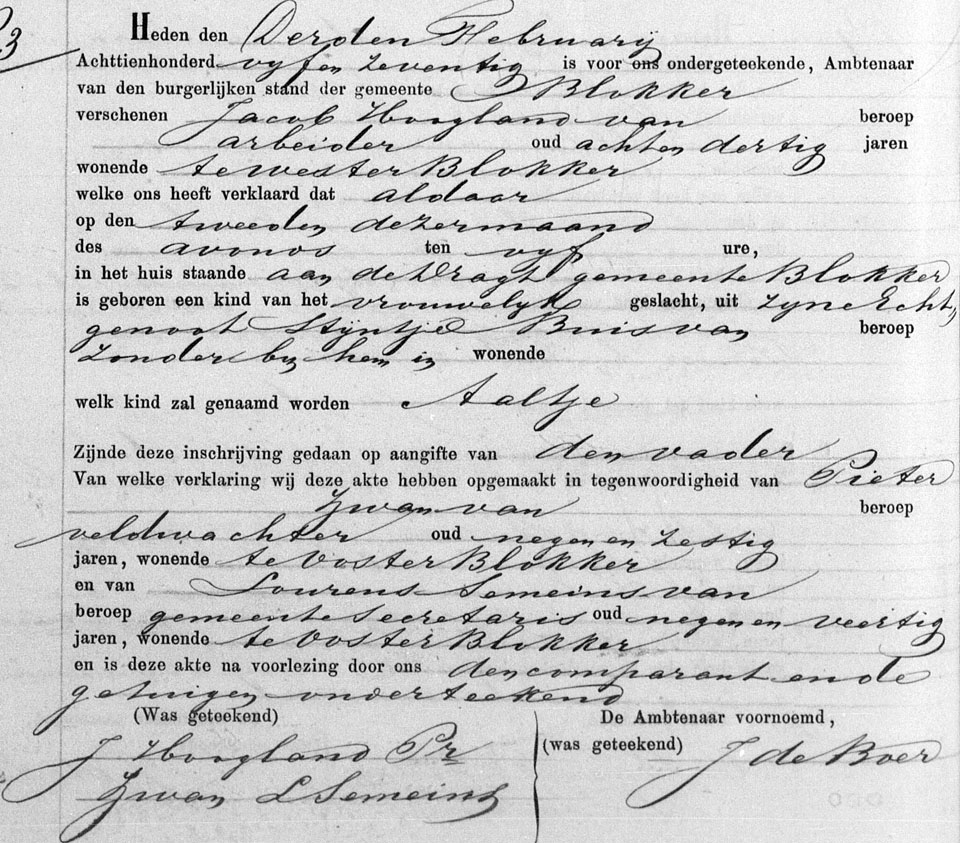 3
Heden den Derden February
Achttienhonderd vyf en zeventig is voor ons ondergeteekende, Ambtenaar
van den burgerlijken stand der gemeente Blokker
verschenen Jacob Hoogland van beroep
arbeider oud acht en dertig jaren
wonende te Wester Blokker
welke ons heeft verklaard dat aldaar
op den tweeden dezer maand
des avonds ten vyf ure,
in het huis staande aan de Dragt gemeente Blokker
is geboren een kind van het vrouwelyk geslacht, uit zyne Echt,
genoot Styntje Buis van beroep
zonder by hem in wonende
welk kind zal genaamd worden Aaltje
Zijnde deze inschrijving gedaan op aangifte van den vader
Van welke verklaring wij deze akte hebben opgemaakt in tegenwoordigheid van Pieter
Zwan van beroep
veldwachter oud negen en zestig
jaren, wonende te Ooster Blokker
en van Lourens Semeins van
beroep gemeente secretaris oud negen en veertig
jaren, wonende te Ooster Blokker
en is deze akte na voorlezing door ons den comparant en de
getuigen onderteekend
(Was geteekend) De Ambtenaar voornoemd,
J Hoogland Pr (was geteekend) J de Boer
Zwan L Semeins